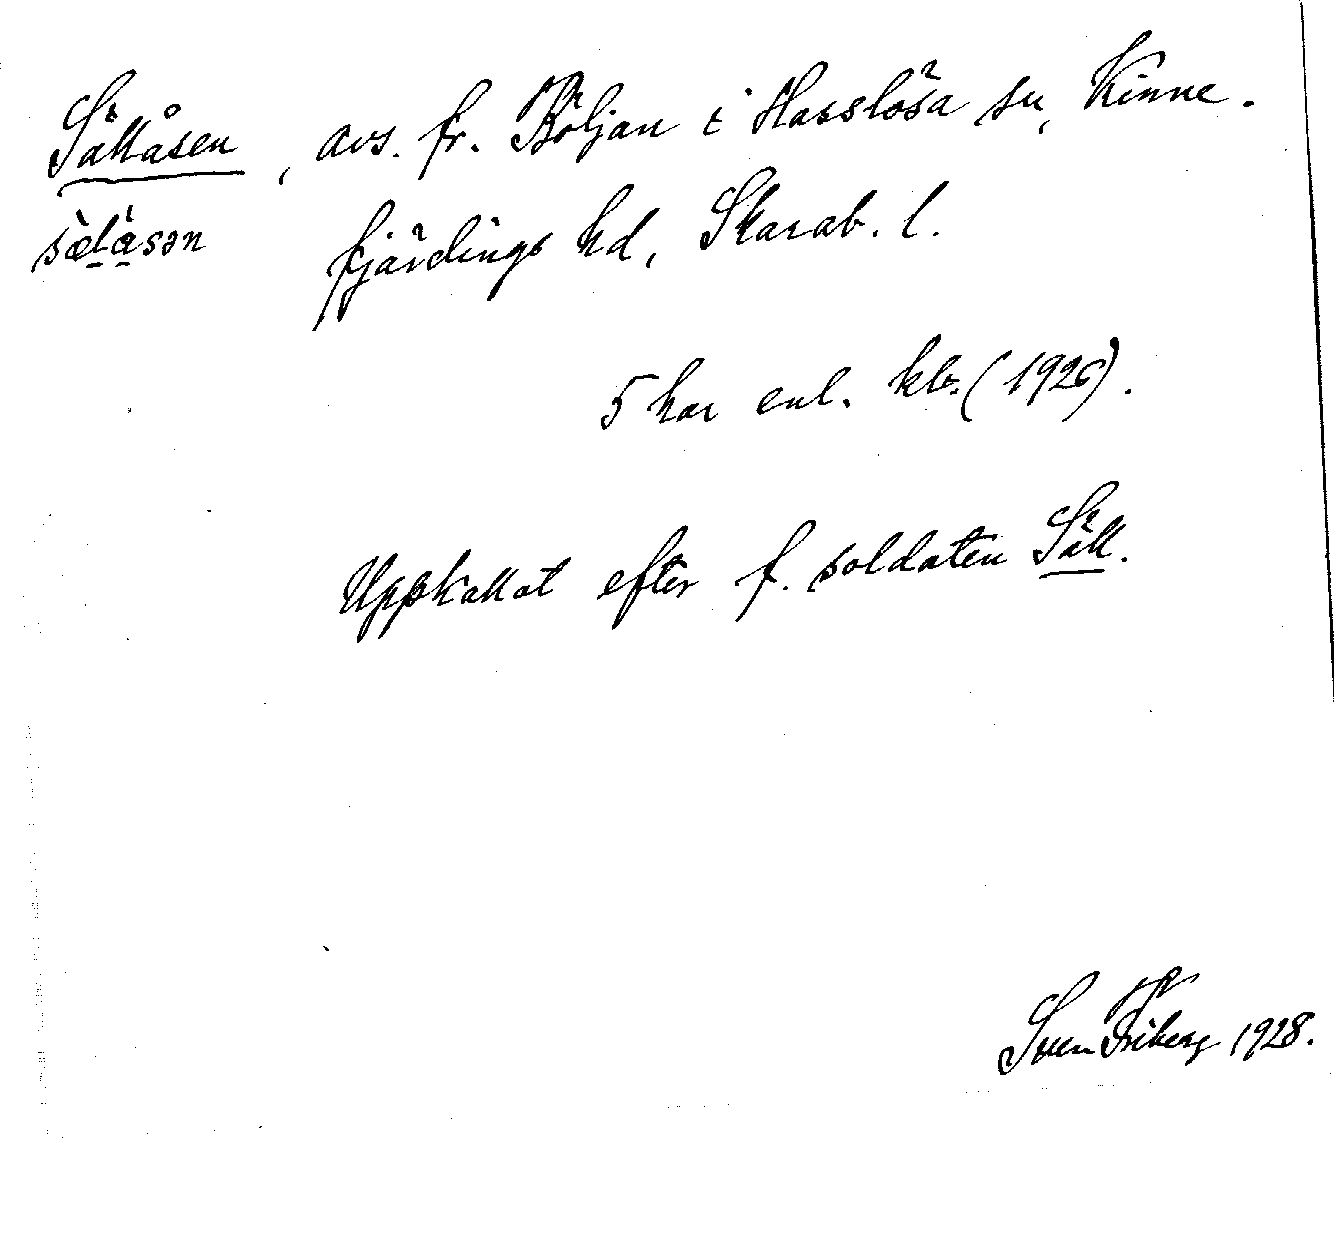 Sällåsen, avs. fr. Böljan i Hasslösa sn, Kinne-
sæ̀låsən fjärdings hd, Skarab. l.
5 har enl. kb. (1926).
Uppkallat efter f. soldaten Säll.
Sven Friberg 1928.